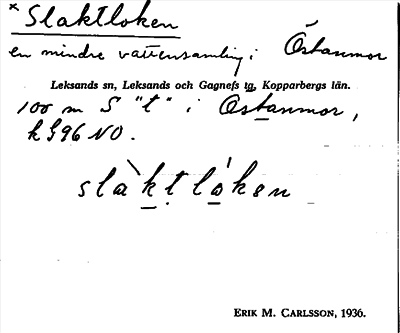 × Slaktloken
en mindre vattensamling i Östanmor
Leksands sn, Leksands och Gagnefs tg, Kopparbergs län.
100 m S "t" i Östanmor,
k 96 NO.
slàktlóken
ERIK M. CARLSSON, 1936.